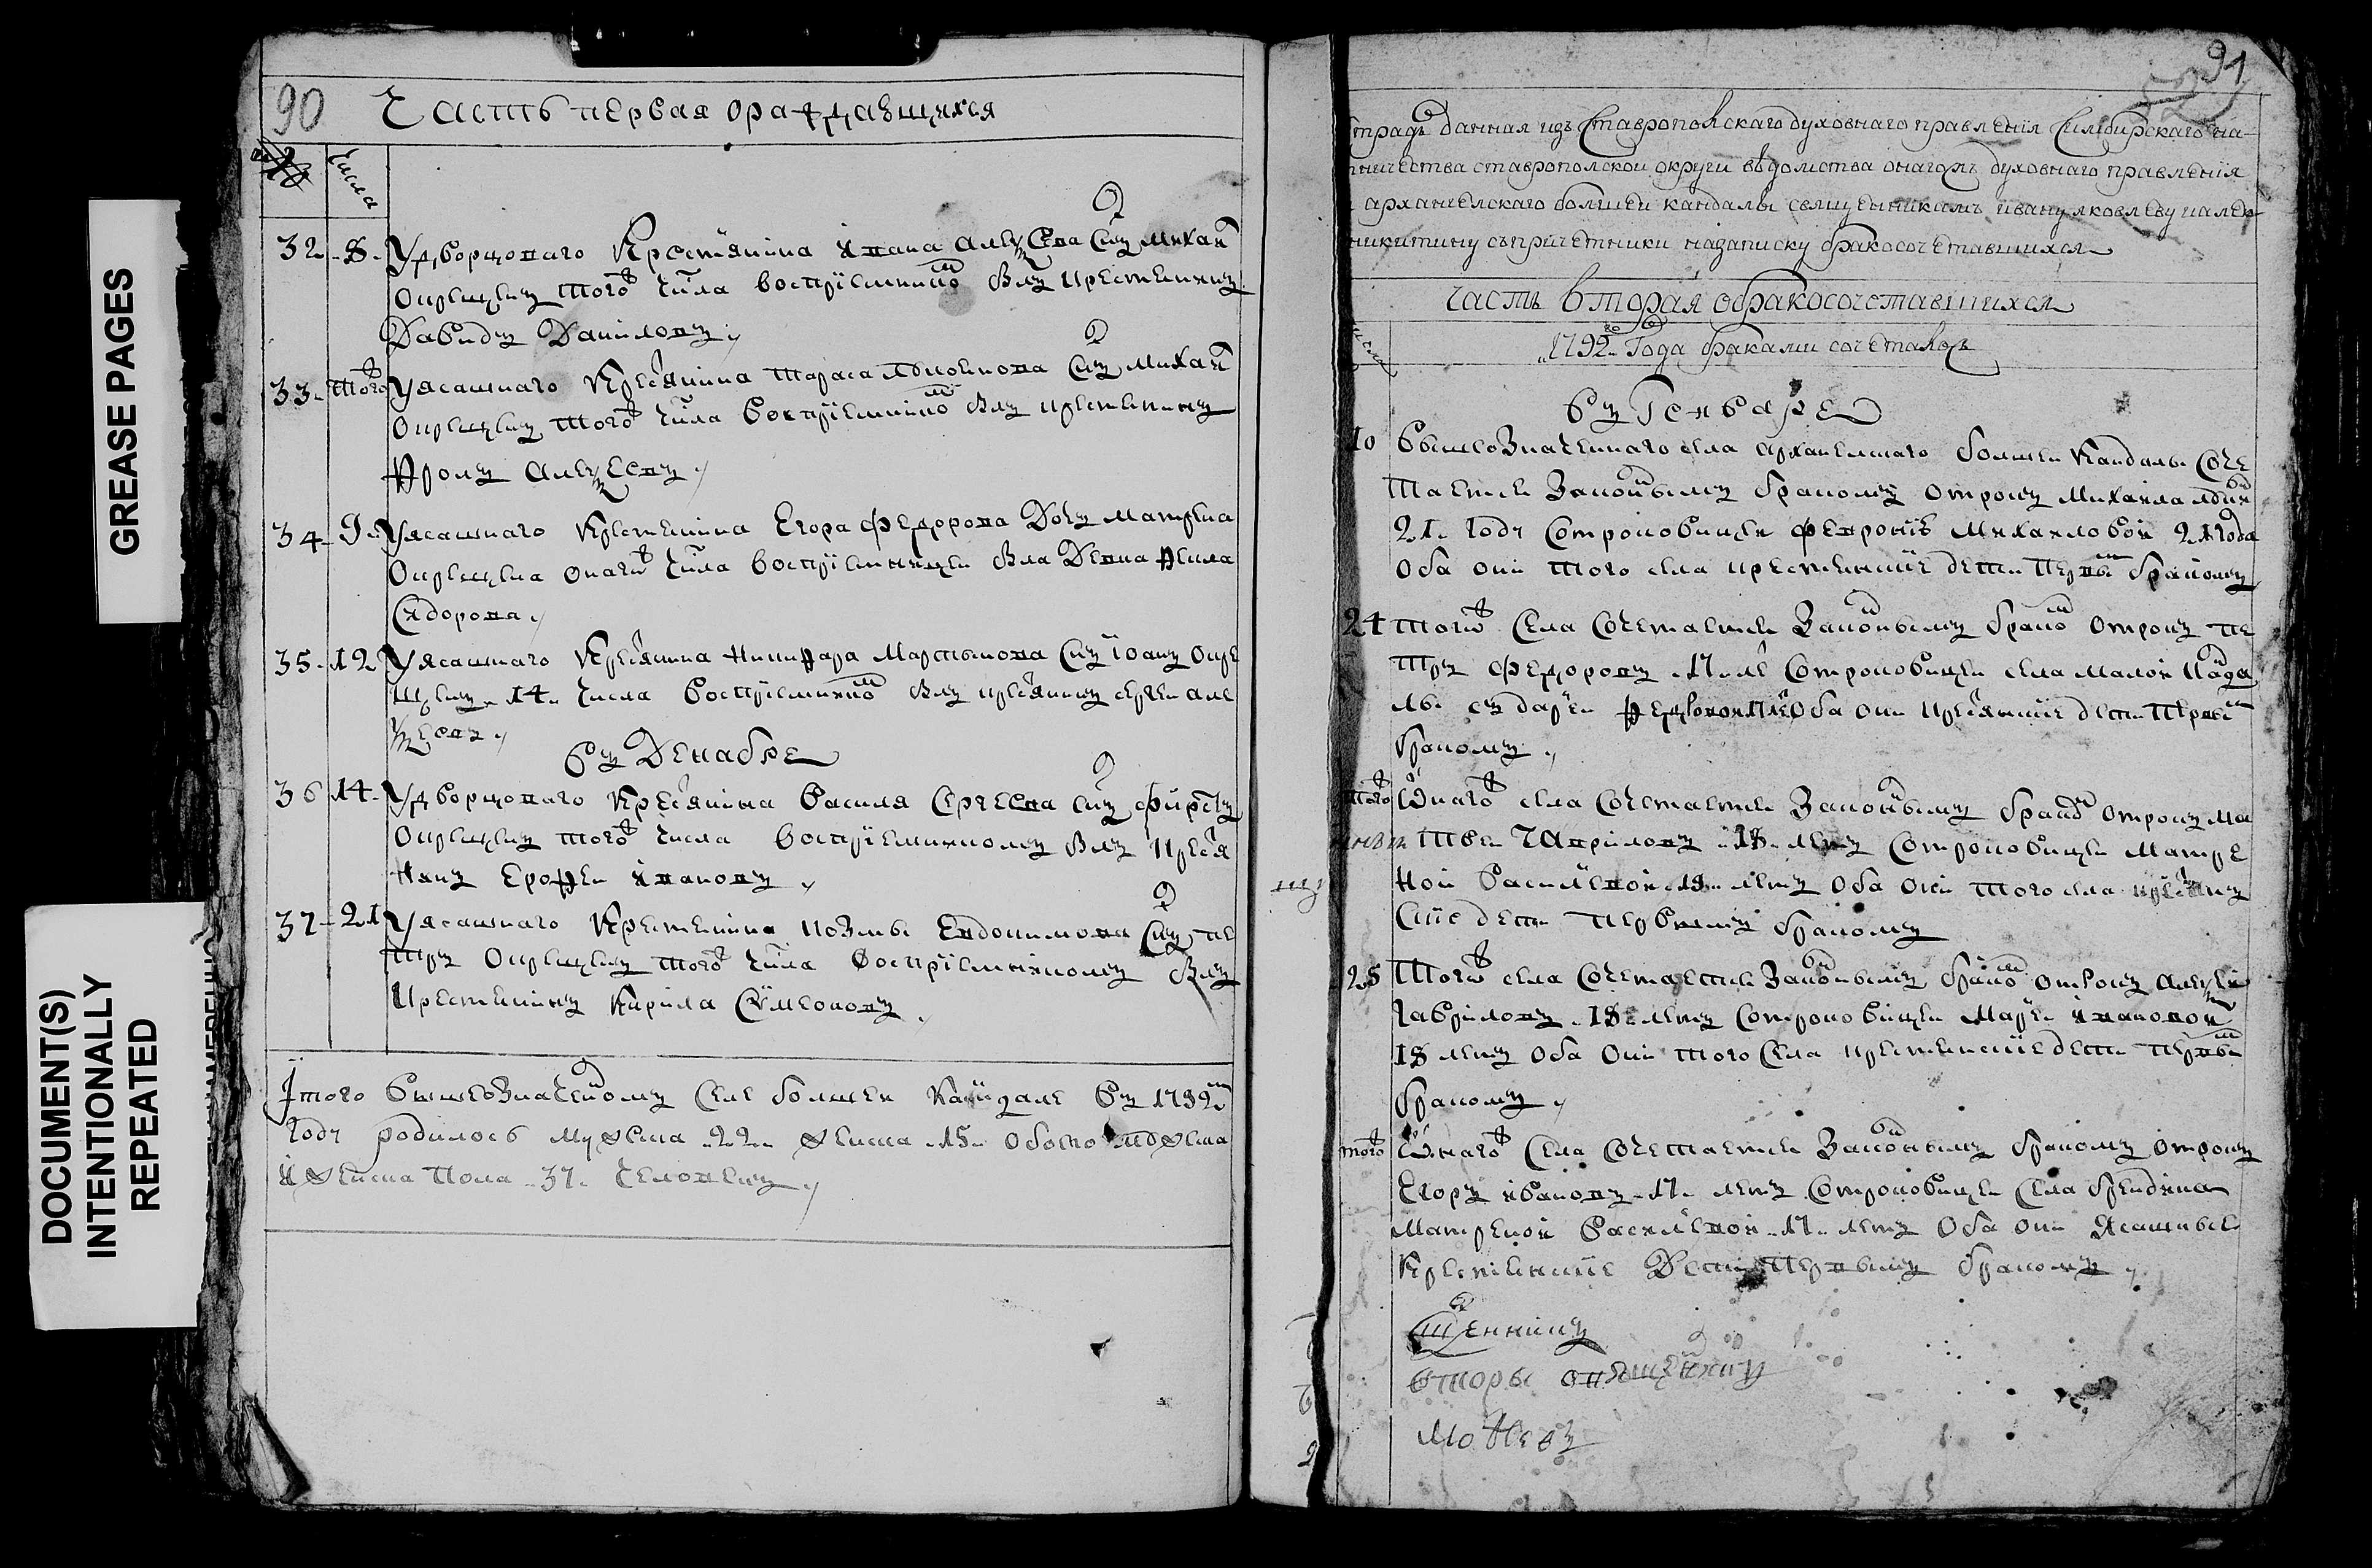 GREASE PAGES
DOCUMENT(S)
INTENTIONALLY
REPEATED
90
Часть первая ораждающихся
числа
32 8 У дворцоваго крестьянина Ивана Алексеева сынъ Михаил
окрещенъ того числа воспрiемником былъ крестьянинъ
Давидъ Даниловъ
33 того У ясашнаго крестьянина Тараса сынъ Михаил
окрещенъ того числа воспрiемником былъ крестьянинъ
Фролъ Алексеевъ
34 9 У ясашнаго крестьянина Егора Федорова дочь Матрена
окрещена онаго числа воспрiемницей была девка
Сидорова
35 12 У ясашнаго крестьянина Никифора Мартынова сынъ Iоанъ окре
щенъ 14 числа воспрiемником былъ крестьянинъ Сергей Але
ксеевъ
въ Декабре
36 14 У дворцоваго крестьянина Василя Сергеева сынъ Фирсъ
окрещенъ того числа воспрiемникомъ былъ крестья
нинъ Ерофей Ивановъ
37 21 У ясашнаго крестьянина Козмы Евдокимова сынъ Пе
тръ окрещенъ того числа воспрiемникомъ былъ
крестьянинъ Кирила Симеоновъ
Iтого вышеозначенномъ селе Болшей Кандале въ 1792м
годе родилось мужеска 22 женска 15 обоего мужеска
и женска пола 37 человекъ
91
данная изъ Ставропольскаго духовнаго правленiя Симбирскаго на
ничества ставрополской округи вѣдомства онагожъ духовнаго правленiя
архангелскаго болшей кандалы священникамъ ивану яковлеву
никитину съпричетники назаписку бракосочетавшихся
часть вторая обракосочетавшихся
числа
1792 го Года браками сочетахося
въ Генваре
10 вышеозначеннаго села Архангелскаго Болшей Кандалы соче
тается законнымъ бракомъ отрокъ Михаила
21 году сотроковицей Февронiѣ Михаиловой 21 года
оба они того села крестьянскiе дети первым бракомъ
24 того села сочетается законнымъ браком отрокъ Пе
тръ Федоровъ 17 ле сотроковицей села Малой Канда
лы съ Дарьей 17 ле оба они крестьянскiе дети первым
бракомъ
того онаго села сочетается законнымъ браком отрокъ Ма
твей Гавриловъ 18 летъ сотроковицей Матре
ной Васильевой 19 летъ оба они того села крестьян
скiе дети первымъ бракомъ
25 того села сочетается законнымъ браком отрокъ Алексей
Гавриловъ 18 летъ сотроковицей Марьей Ивановой
18 летъ оба они того села крестьянскiе дети первым
бракомъ
того онаго села сочетается законнымъ бракомъ отрокъ
Егоръ Ивановъ 17 летъ сотроковицей села
Матреной Васильевой 17 летъ оба они ясашные
крестьянскiе дети первымъ бракомъ
священникъ